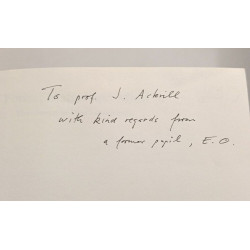 To prof. J. Ackrill
with kind regards from
a former pupil, E.O.